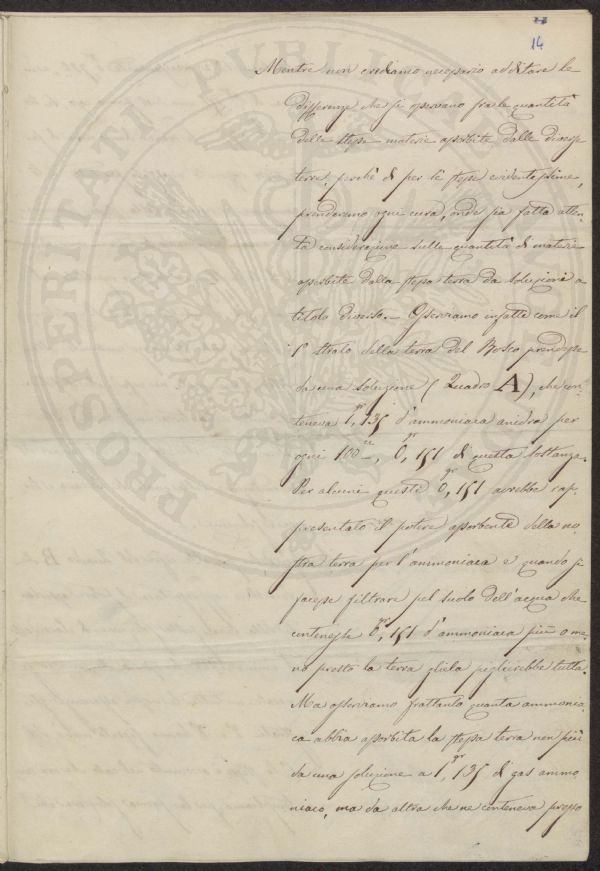 14
Mentre non crediamo necessario additare le
differenze che si osservano fra le quantità
delle stesse materie assorbite dalle diverse
terre, perchè di per se stesse evidentissime,
prenderemo ogni cura, onde sia fatta atten-
ta considerazione sulle quantità di materie
assorbite dalla stessa terra da soluzioni a
titolo diverso. – Osserviamo infatti come il
1° strato della terra del Bosco prendesse
da una soluzione (Quadro A), che con-
teneva 1,gr 135 d'ammoniaca anidra per
ogni 100cc, 0,gr 151 di questa sostanza.
Per alcuni questi 0,gr 151 avrebbe rap-
presentato il potere assorbente della no-
stra terra per l'ammoniaca e quando si
facesse filtrare pel suolo dell'acqua che
contenesse 0,gr 151 d'ammoniaca più o me-
no presto la terra gliela piglierebbe tutta.
Ma osserviamo frattanto quanta ammonia-
ca abbia assorbita la stessa terra non più
da una soluzione a 1,gr 135 di gas ammo-
niaco, ma da altra che ne conteneva presso
PROSPERITATI PUBLICAE